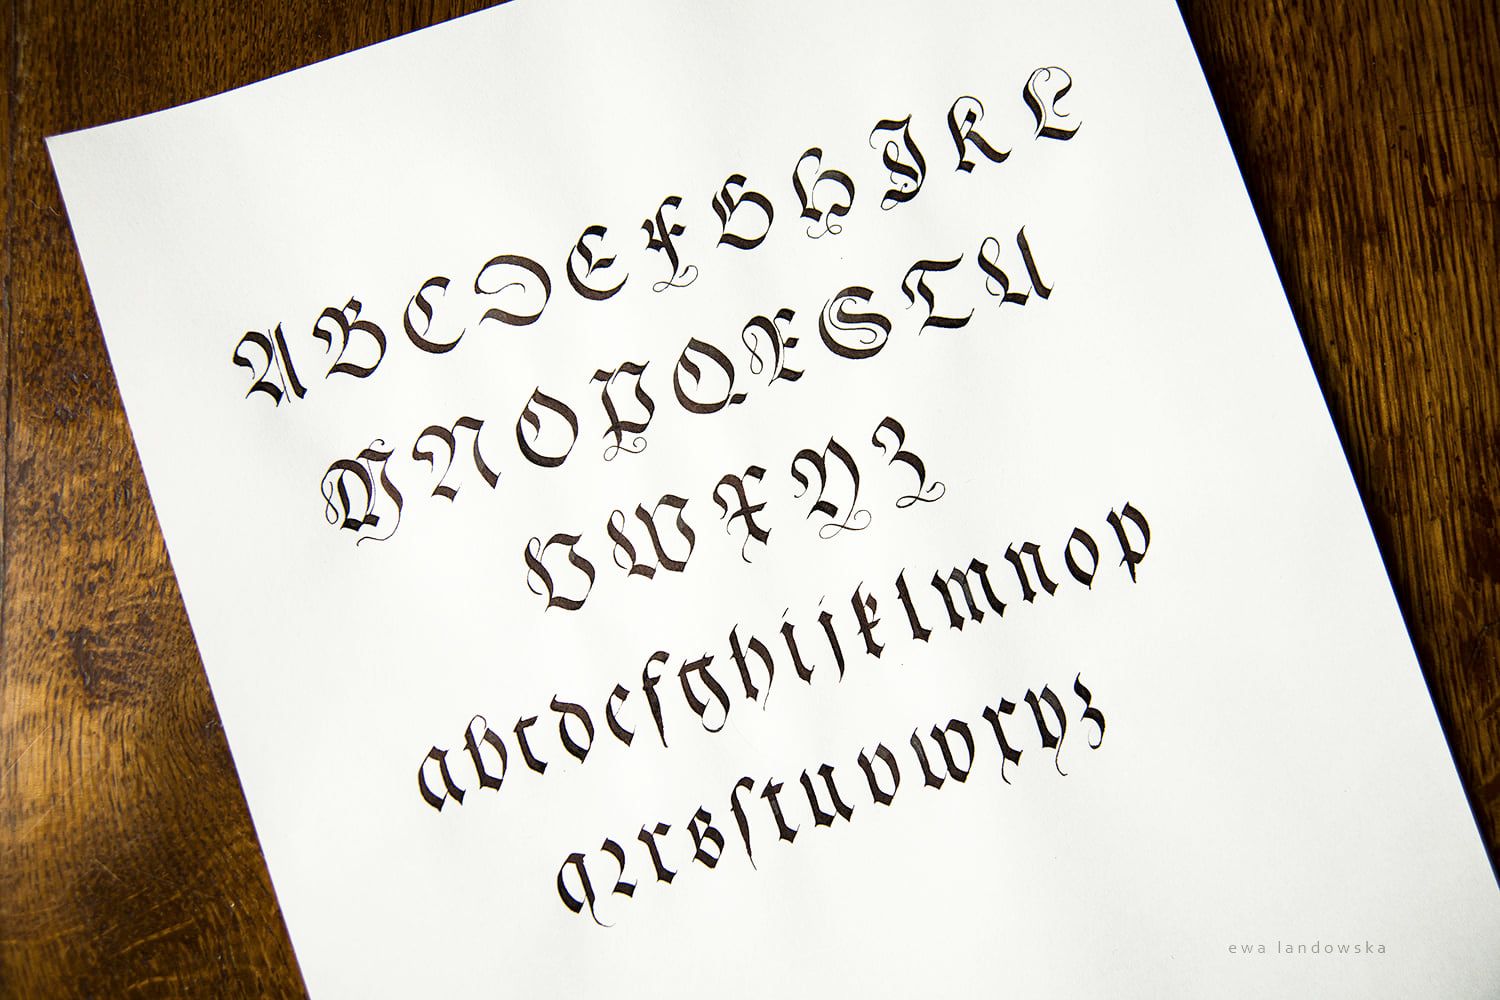 A B C D E F G H I K L
M N O P Q R S T U
V W X Y Z
a b c d e f g h i j k l m n o p
q ꝛ r s ſ t u v w x y z
ewa landowska